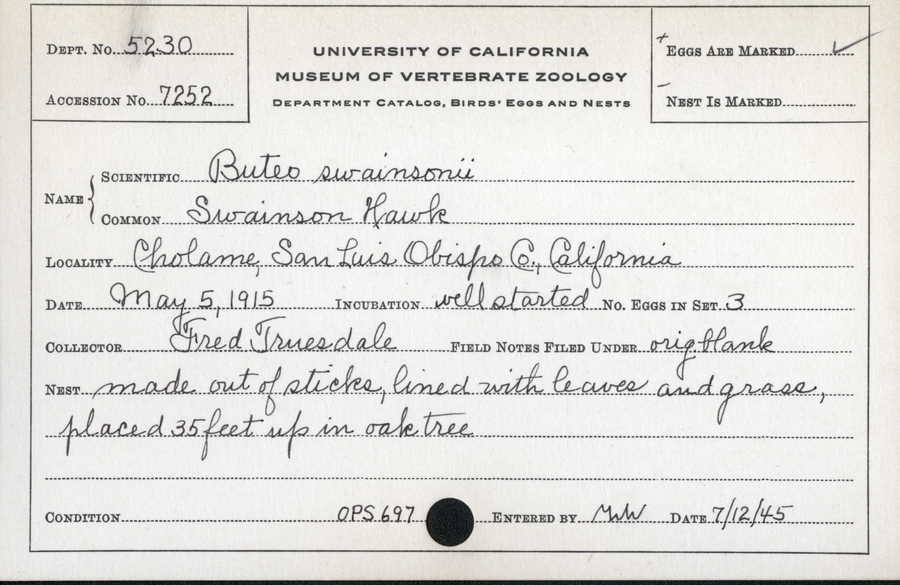 DEPT. No. 5230
UNIVERSITY OF CALIFORNIA
MUSEUM OF VERTEBRATE ZOOLOGY
DEPARTMENT CATALOG, BIRDS' EGGS AND NESTS
+ EGGS ARE MARKED ✓
ACCESSION No. 7252
– NEST IS MARKED
NAME { SCIENTIFIC Buteo swainsonii
COMMON Swainson Hawk
LOCALITY Cholame, San Luis Obispo Co., California
DATE May 5, 1915 INCUBATION well started No. EGGS IN SET 3
COLLECTOR Fred Truesdale FIELD NOTES FILED UNDER orig blank
NEST made out of sticks, lined with leaves and grass,
placed 35 feet up in oak tree
CONDITION OPS 697 ENTERED BY DATE 7/12/45